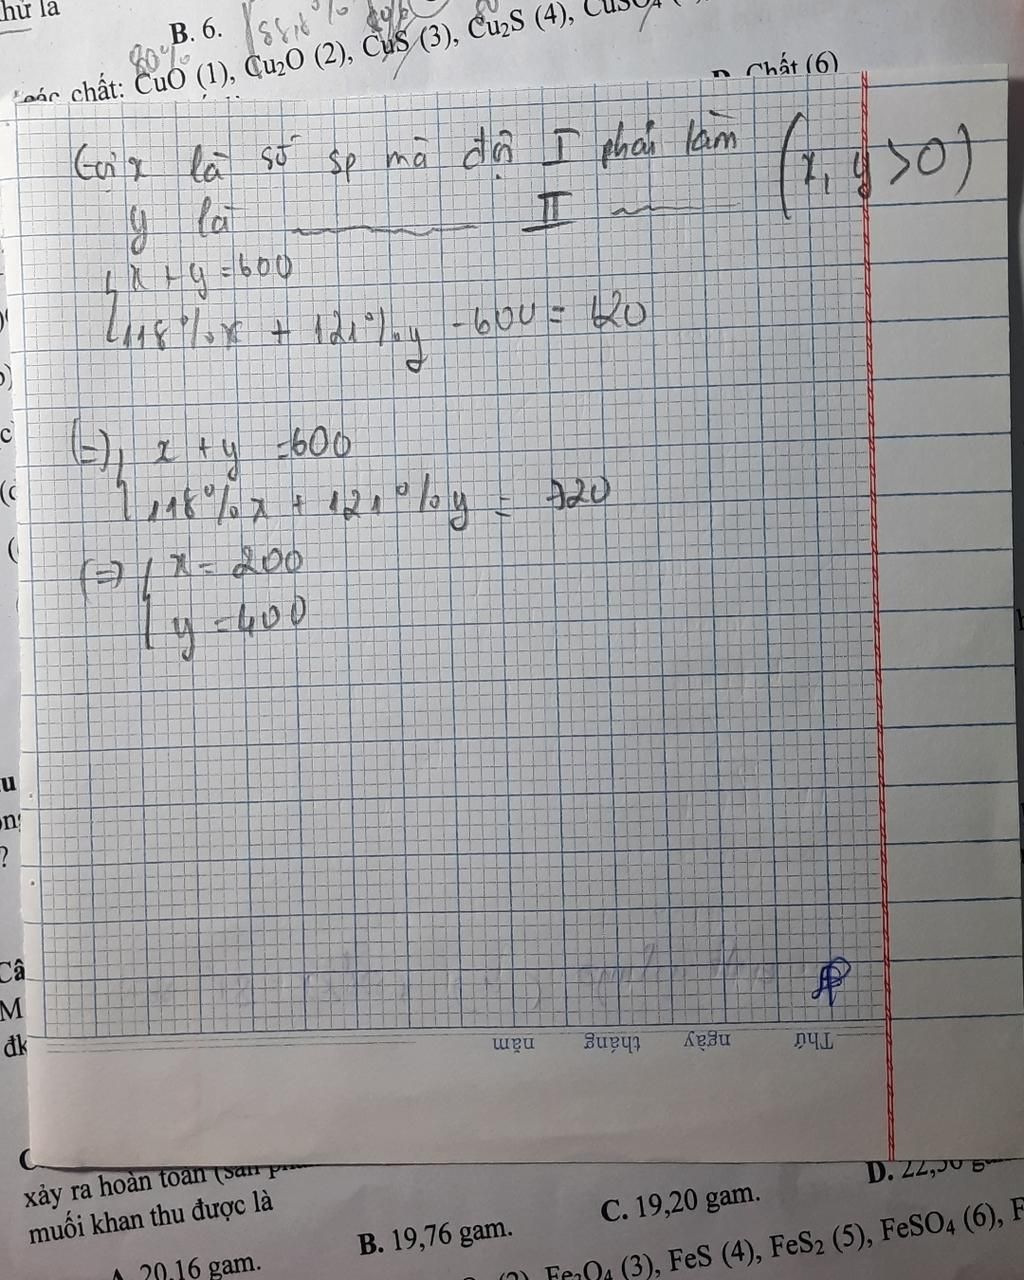 hử là
B. 6.
80%
các chất: CuO (1), Cu₂O (2), CuS (3), Cu₂S (4), CuSO₄
D. Chất (6)
Gọi x là số sp mà đội I phải làm (x, y >0)
y là ——— II ———
{ x + y = 600
118%x + 121%y - 600 = 120
(=) { x + y = 600
118%x + 121%y = 720
(=) { x = 200
y = 400
Thứ ngày tháng năm
Câ
M
đk
xảy ra hoàn toàn (sản ph
muối khan thu được là
A. 20,16 gam. B. 19,76 gam. C. 19,20 gam. D. 22,56 g
Fe₃O₄ (3), FeS (4), FeS₂ (5), FeSO₄ (6), F